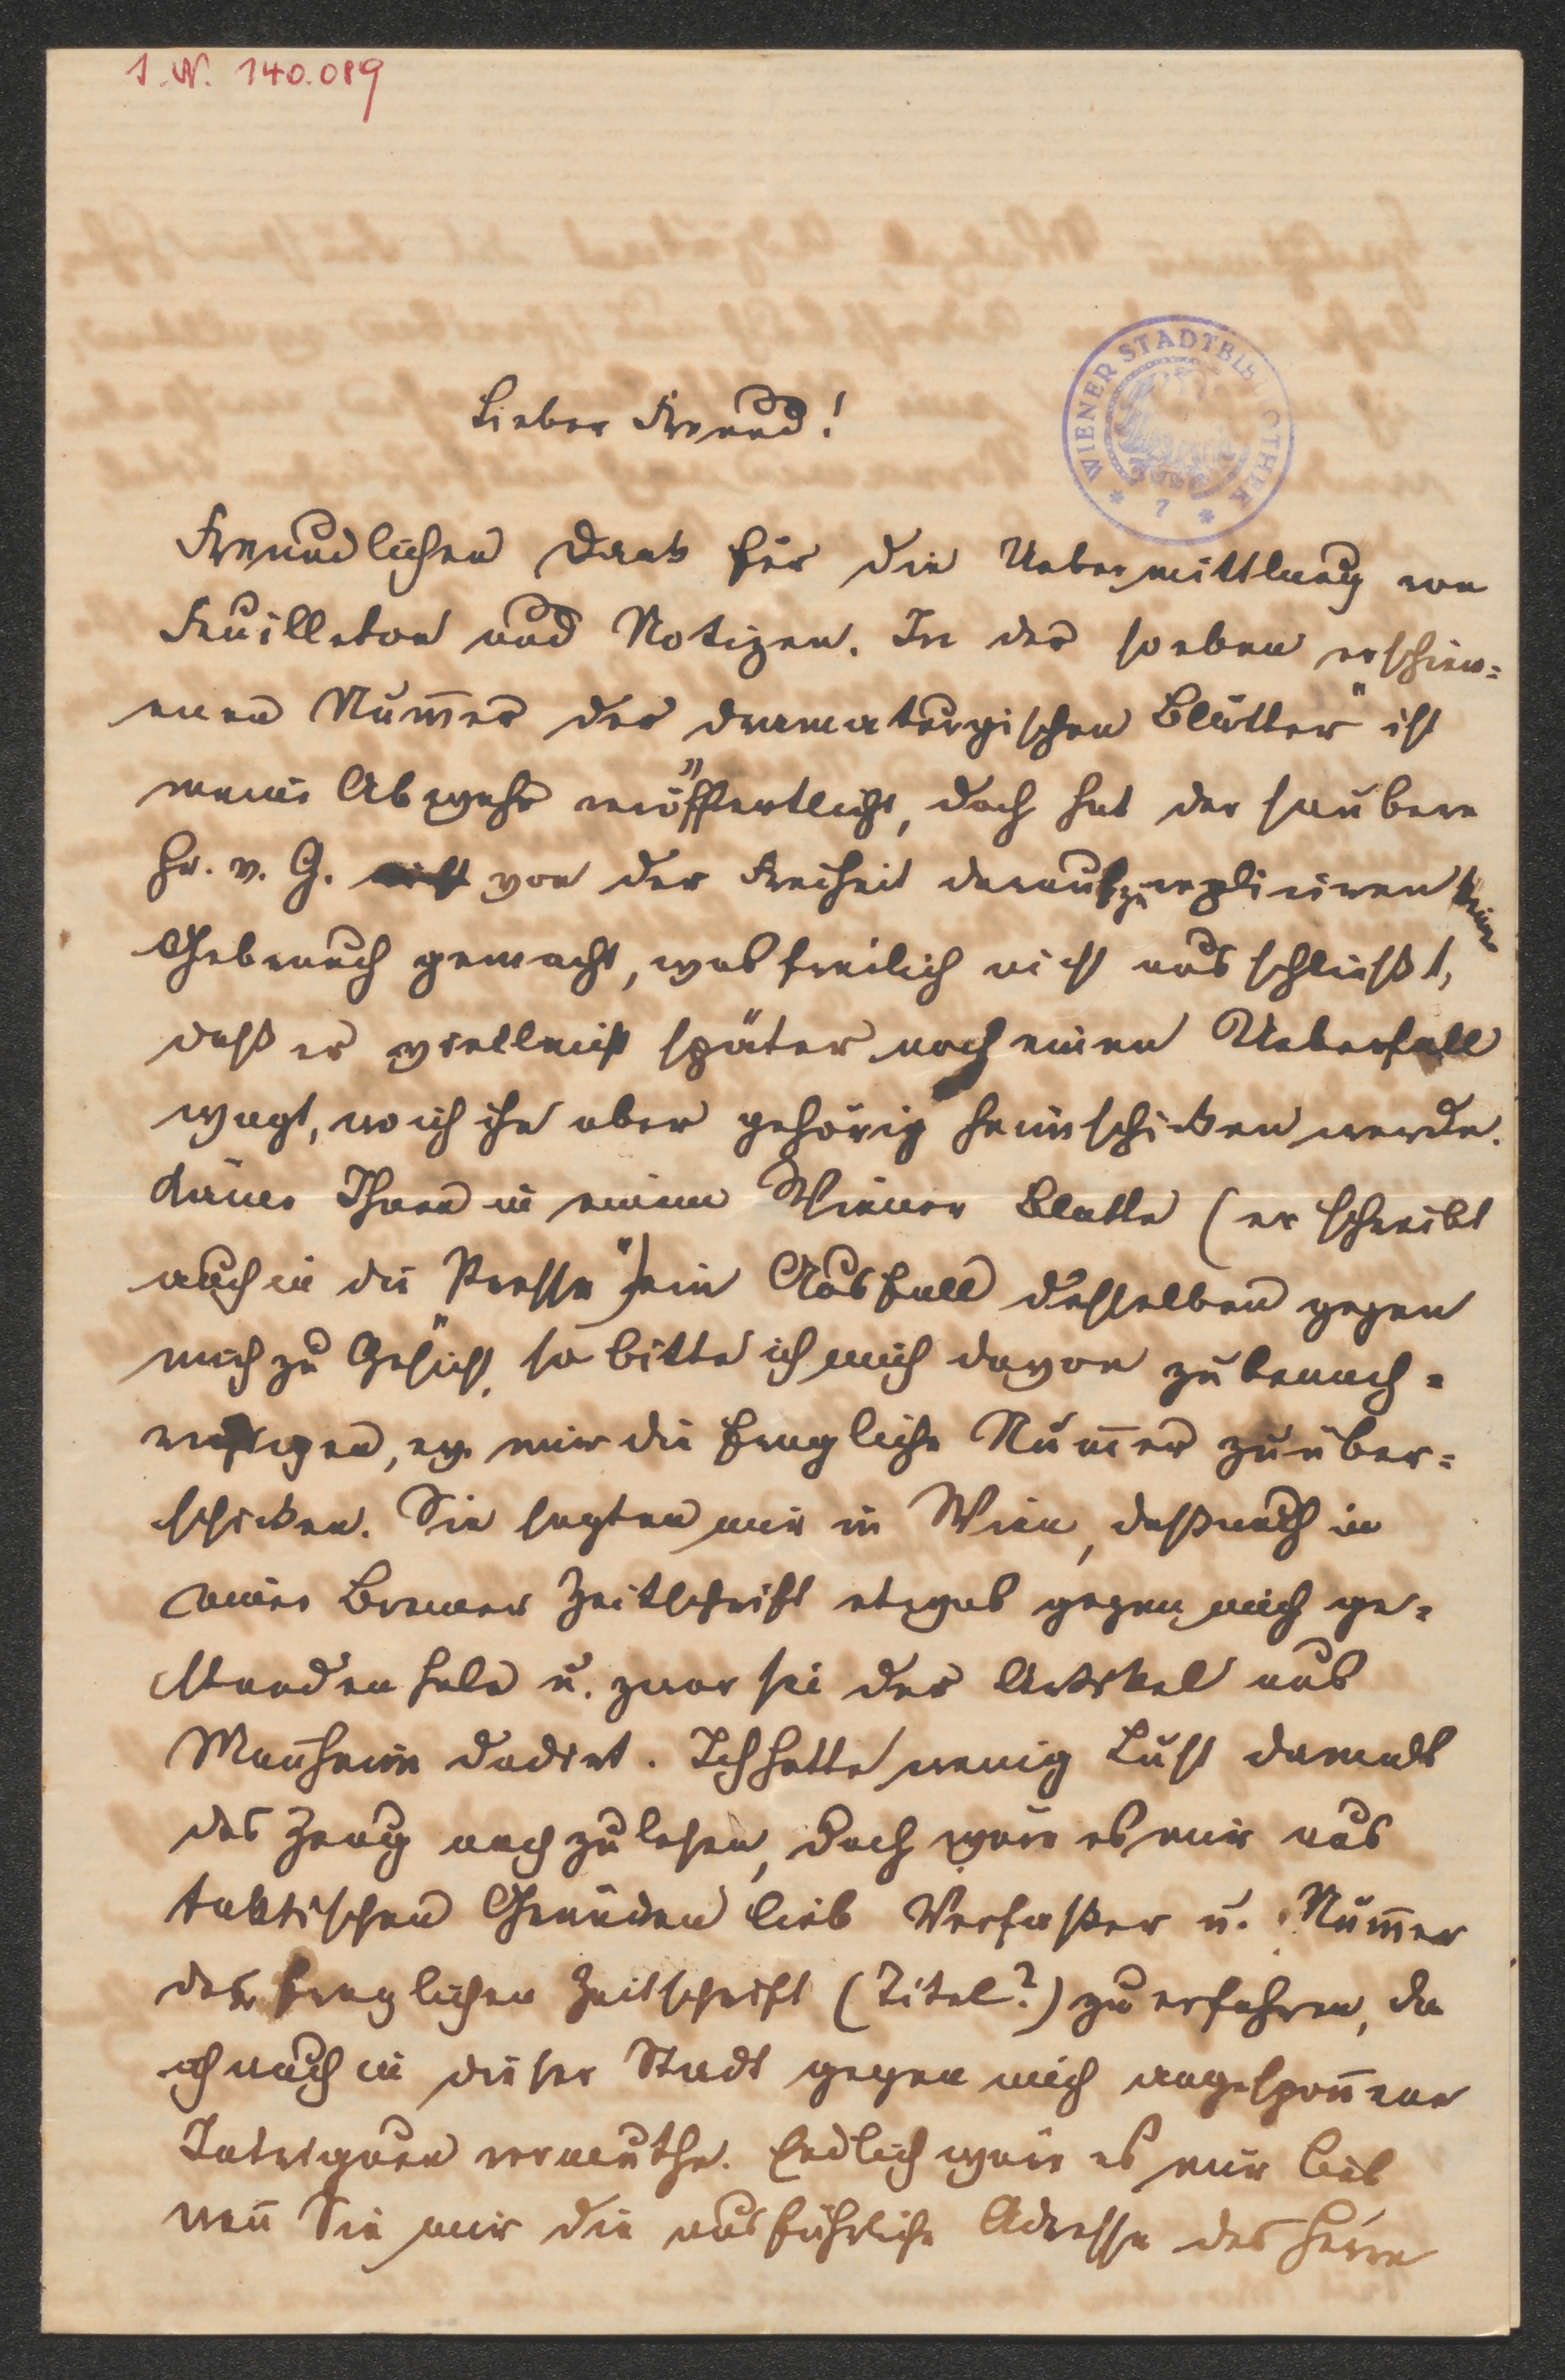 I.N. 140.089
WIENER STADTBIBLIOTHEK
* 7 *
Lieber Freund!
Freundlichen Dank für die Uebermittlung von
Feuilleton und Notizen. In der soeben erschien-
enen Num̅er der „dramaturgischen Blätter" ist
meine Abwehr veröffentlicht, doch hat der saubere
Hr. v. G. nicht von der Freiheit darauf zu repliciren keinen
Gebrauch gemacht, was freilich nicht ausschließt,
daß er vielleicht später noch einen Ueberfall
wagt, wo ich ihn aber gehörig heimschicken werde.
Käme Ihnen in einem Wiener Blatte (er schreibt
auch in die „Presse") ein Ausfall desselben gegen
mich zu Gesicht, so bitte ich mich davon zu benach-
richtigen, ev. mir die fragliche Num̅er zu über-
schicken. Sie sagten mir in Wien, daß auch in
einer Bremer Zeitschrift etwas gegen mich ge-
standen habe u. zwar sei der Artikel aus
Man̅heim dadirt. Ich hatte wenig Lust damals
das Zeug nachzulesen, doch wäre es mir aus
taktischen Gründen lieb Verfasser u. Num̅er
der fraglichen Zeitschrift (Titel?) zu erfahren, da
ich auch in dieser Stadt gegen mich angespon̅ene
Intriguen vermuthe. Endlich wäre es mir lieb
wen̅ Sie mir die ausführliche Adresse des Herrn